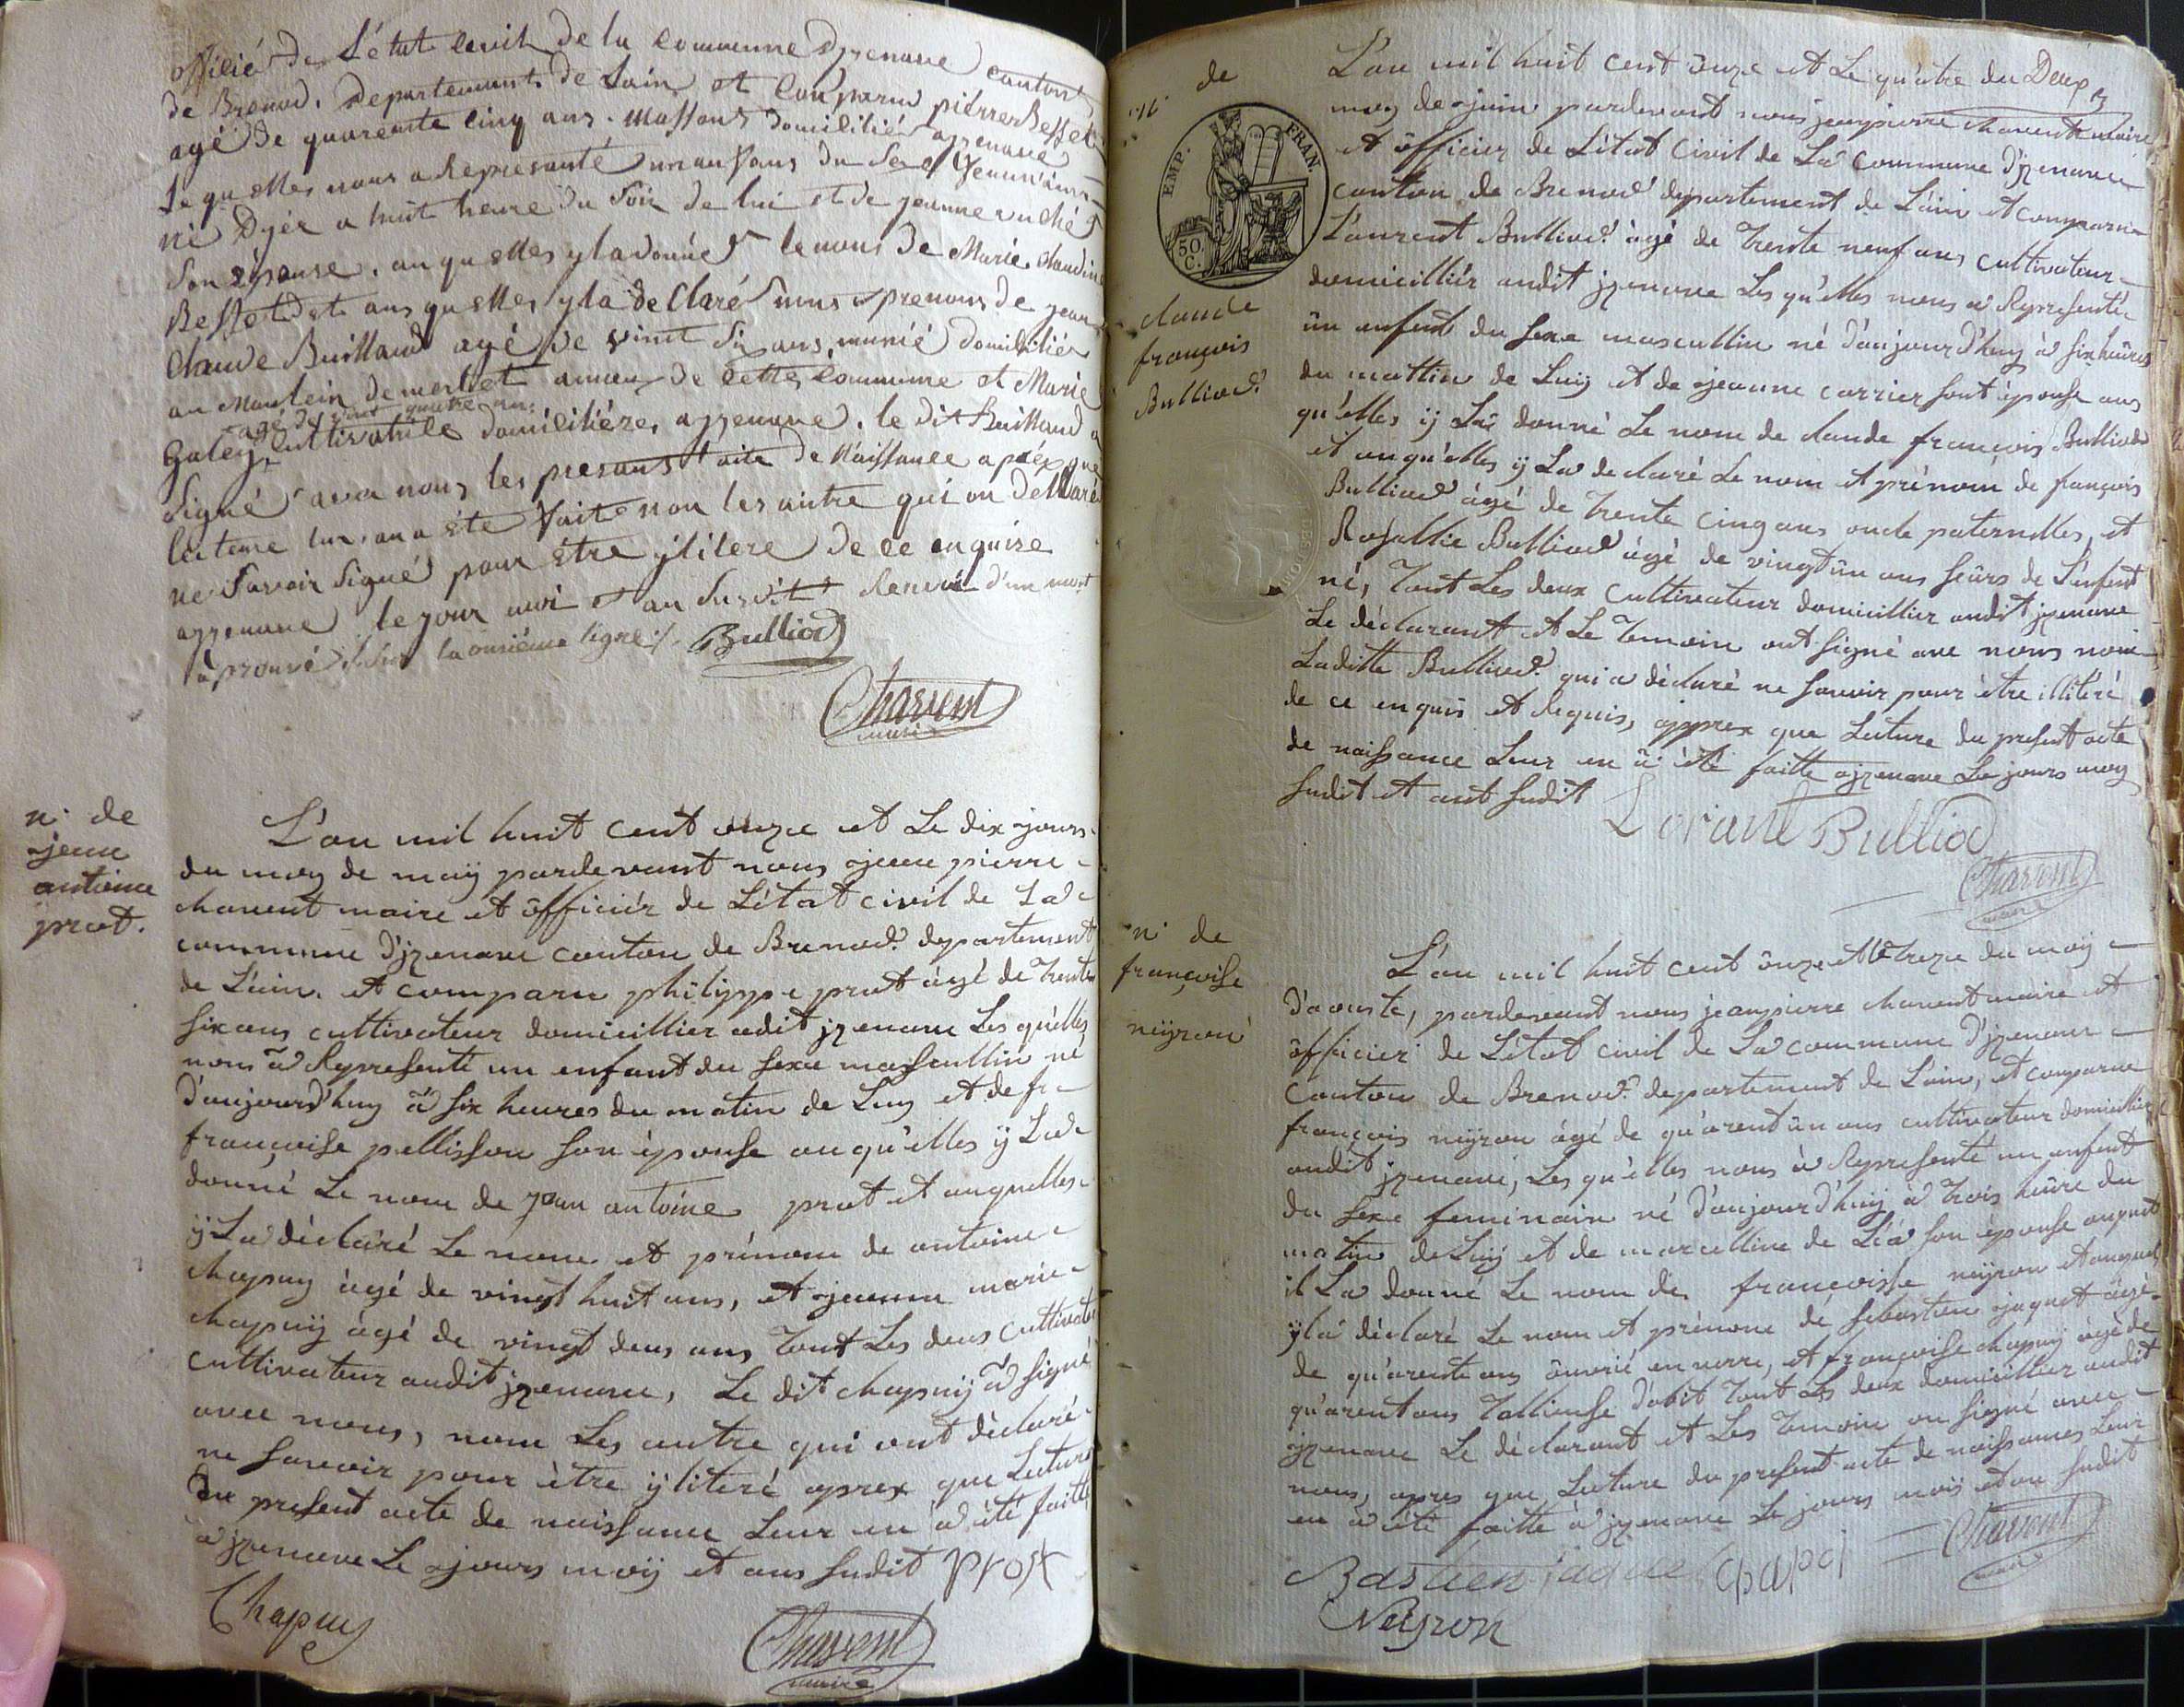 officié de L'état civil de la Commune dyzenave canton
de Brenod. Departement de Lain et Comparu piérre Bessét
agé de quarente cinq ans. massons domicilié ayzenave
Le quelles nous a Representé un anfans du Sexe
né Dyér a huit heure du Soir de lui et de jeanne
Son épouse. au quelles yla donnér le nons de Marie. Claudine
Bessetdet ans quelles yla de Claré nons prenons de jean
Claude Buillaud agé de vint Six ans, munié domicilié
au Moulein de mertet de Cette Commune et Marie
agé de vint quatre ans
Galey cultivatrice domicilière, ayzenave. le dit Buillaud a
Signé avec nous les presans aite de Naissance apréx que
lecteure lur an a éte faite non les autre qui on declaré
ne Savoir Signé pour étre ylitere De ce enquise
ayzenave le jour moi et an Susdit Renvoi d'un mot
aprouvé sur la onsiéme ligne ./. Bulliod
Chavent
maire
n. de
jean
antoine
prat.
L'an mil huit cent onze et Le dix jours
du moy de maÿ pardevant nous jean pierre
chavent maire et officiér de L'état civil de La
commune D'jzenave canton de Brenod. departement
de L'ain. et comparu philippe prat âgé de trente
six ans cultivateur domicillier adit jzenave Les qu'elles
nous à Represente un enfant du sexe massculin né
D'aujourd'huy à six heures du matin de Luy et de fr
françoise pellisson son éponse au qu'elles ÿ La
donné Le nom de jean antoine prat et auquelles
ÿ La déclaré Le nom et prénom de antoine
chapuy âgé de vingt huit ans, et jeanne marie
chapuÿ âgé de vingt deus ans Tout Les deus cultivate
cultivateur audit jzenave, Le dit chapuÿ à signé
avec nous, nom Les autre qui ont déclaré
ne savoir pour être ÿliteré aprex que Lecture
du present acte de naissance Leur en à été faitte
à jzenave Le jours moÿ et ans sudit prost
Chapuy
Chavent
maire
de
EMP. FRAN.
50
C.
claude
françois
Bulliod.
L'an mil huit cent onze et Le qu'atre du Deux
moy de juin pardevant nous jeanpierre chavent maire
et officier de L'état Civil de La Commune D'jzenave
canton de Brenod departement de L'ain et comparu
L'aurent Bulliod. âgé de Trente neuf ans cultivateur
domicillier audit jzenave Les qu'elles nous a Representé
un enfent du sexe mascullin né d'aujourd'huy à six heûres
du mattin de Luy et de jeanne carrier sont éponse aus
qu'elles ÿ La donné Le nom de claude françois Bulliod
et au qu'elles ÿ La declaré Le nom et prénom de françois
Bulliod âgé de Trente Cinq ans oncle paternelles, et
Rosallie Bulliod âgé de vingt ûn ans seûrs de L'enfent
né, Tout Les deux Cultivateur domicillier audit jzenave
Le déclarant et Le Temoin ont signé avec nous nom
Laditte Bulliod. qui a déclaré ne savoir pour être illitéré
de ce enquis et Requis, apprex que Lecture du present acte
de naissance Leur en à été faitte ajzenave Le jours moy
sudit et ant sudit
Lorant Bulliod
Chavent
maire
n. de
françoisse
neÿron
L'an mil huit cent onze et le Treze du moÿ
D'aouste, pardevant nous jeanpierre chavent maire et
officier de L'état civil de La commune D'jzenave
Canton de Brenod. departement de L'ain, et comparu
françois neÿron âgé de qu'arent ûn ans cultivateur domicillier
audit jzenave, Les qu'elles nous à Represente un enfent
du sexe feminain né D'aujourd'huy à Trois heûre du
matin de Luÿ et de marcelline de Léa son éponse auquel
il La donné Le nom de françoisse neÿron et auquel
ÿla déclaré Le nom et prénom de sebastien jaquet âgé
de qu'arente ans ouvrié en verre, et françoise chapuÿ âgé de
qu'arent ans Tallieuse D'abit Tout Les deux domicillier audit
jzenave Le déclarant et Les Temoin on signé avec
nous, apres que Lecture du present acte de naissances Leur
en à été faitte à jzenave Le jours moÿ et an sudit
Bastien jaquet chapoi Chavent
Neyron